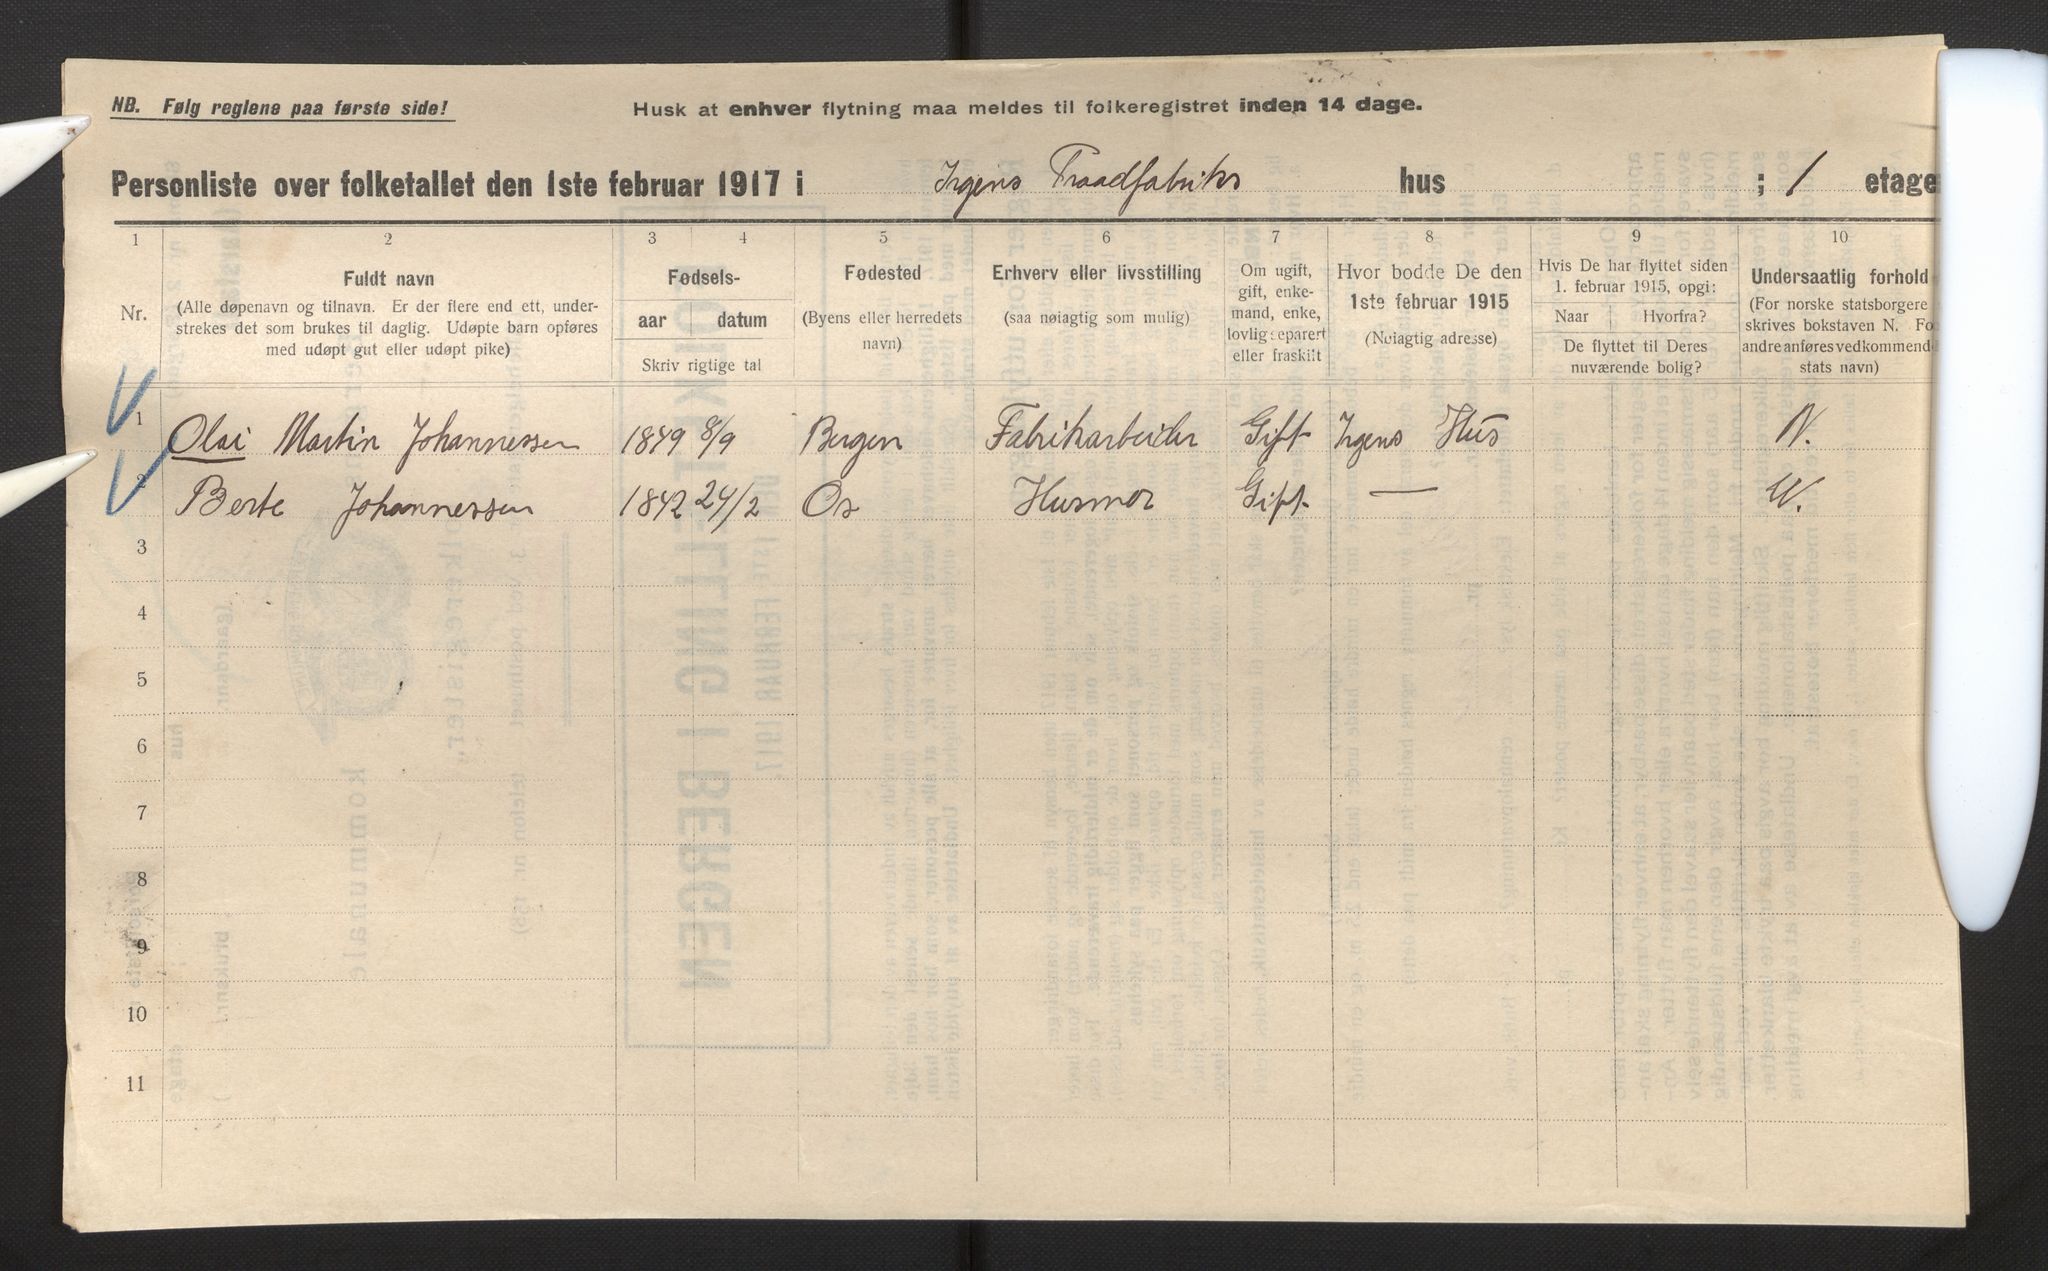 NB. Følg reglene paa første side!
Husk at enhver flytning maa meldes til folkeregistret inden 14 dage.
Personliste over folketallet den 1ste februar 1917 i Irgens Traadfabriks hus ; 1 etage
1 2 3 4 5 6 7 8 9 10
Nr.
Fuldt navn
(Alle døpenavn og tilnavn. Er der flere end ett, under-
strekes det som brukes til daglig. Udøpte barn opføres
med udøpt gut eller udøpt pike)
Fødsels-
aar datum
Skriv rigtige tal
Fødested
(Byens eller herredets
navn)
Erhverv eller livsstilling
(saa nøiagtig som mulig)
Om ugift,
gift, enke-
mand, enke,
lovlig separert
eller fraskilt
Hvor bodde De den
1ste februar 1915
(Nøiagtig adresse)
Hvis De har flyttet siden
1. februar 1915, opgi:
Naar Hvorfra?
De flyttet til Deres
nuværende bolig?
Undersaatlig forhold
(For norske statsborgere
skrives bokstaven N. Fo
andre anføres vedkommend
stats navn)
1 Olai Martin Johannessen 1849 8/9 Bergen Fabrikarbeider Gift Irgens Hus N.
2 Berte Johannessen 1842 24/2 Os Husmor Gift — N.
3
4
5
6
7
8
9
10
11